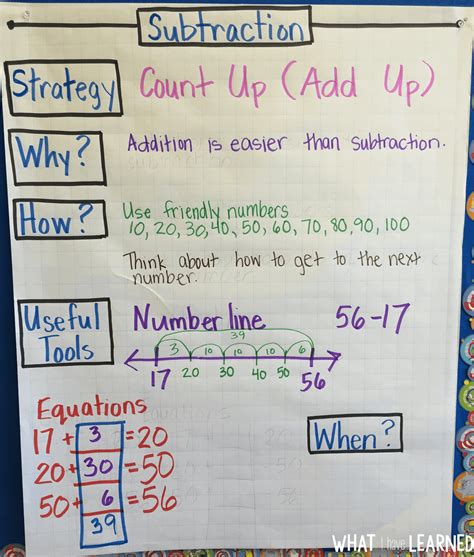 Subtraction
Strategy
Count Up (Add Up)
Why?
Addition is easier than subtraction.
How?
Use friendly numbers
10, 20, 30, 40, 50, 60, 70, 80, 90, 100
Think about how to get to the next
number.
Useful
Tools
Number line
56-17
39
3 10 10 10 6
17 20 30 40 50 56
Equations
17 + 3 = 20
20 + 30 = 50
50 + 6 = 56
39
When?
WHAT I have LEARNED